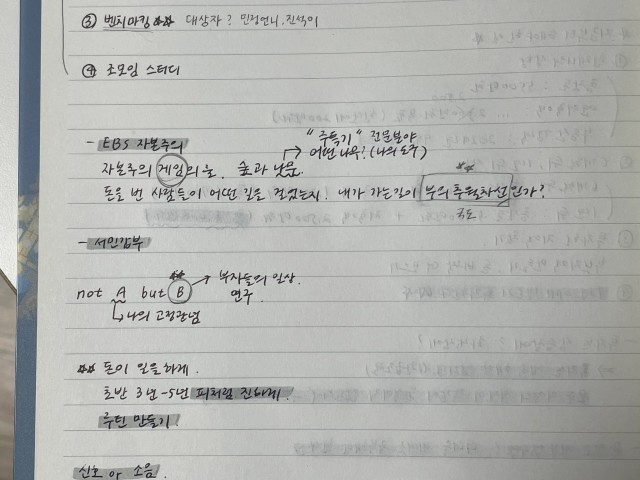 ③ 벤치마킹 ☆☆ 대상자? 민정언니, 진석이
④ 조모임 스터디
- EBS 자본주의
→ "주특기" 전문분야
어떤 나무? (나의 도구)
자본주의 게임의 룰. 숲과 나무.
돈을 번 사람들이 어떤 길을 걸었는지. 내가 가는길이 부의 추월차선인가?
국도
- 서민갑부
not A but B → 부자들의 일상.
연구.
↳ 나의 고정관념
☆☆ 돈이 일을 하게.
초반 3년-5년 피처럼 진하게.
루틴 만들기!
신호 or 소음.